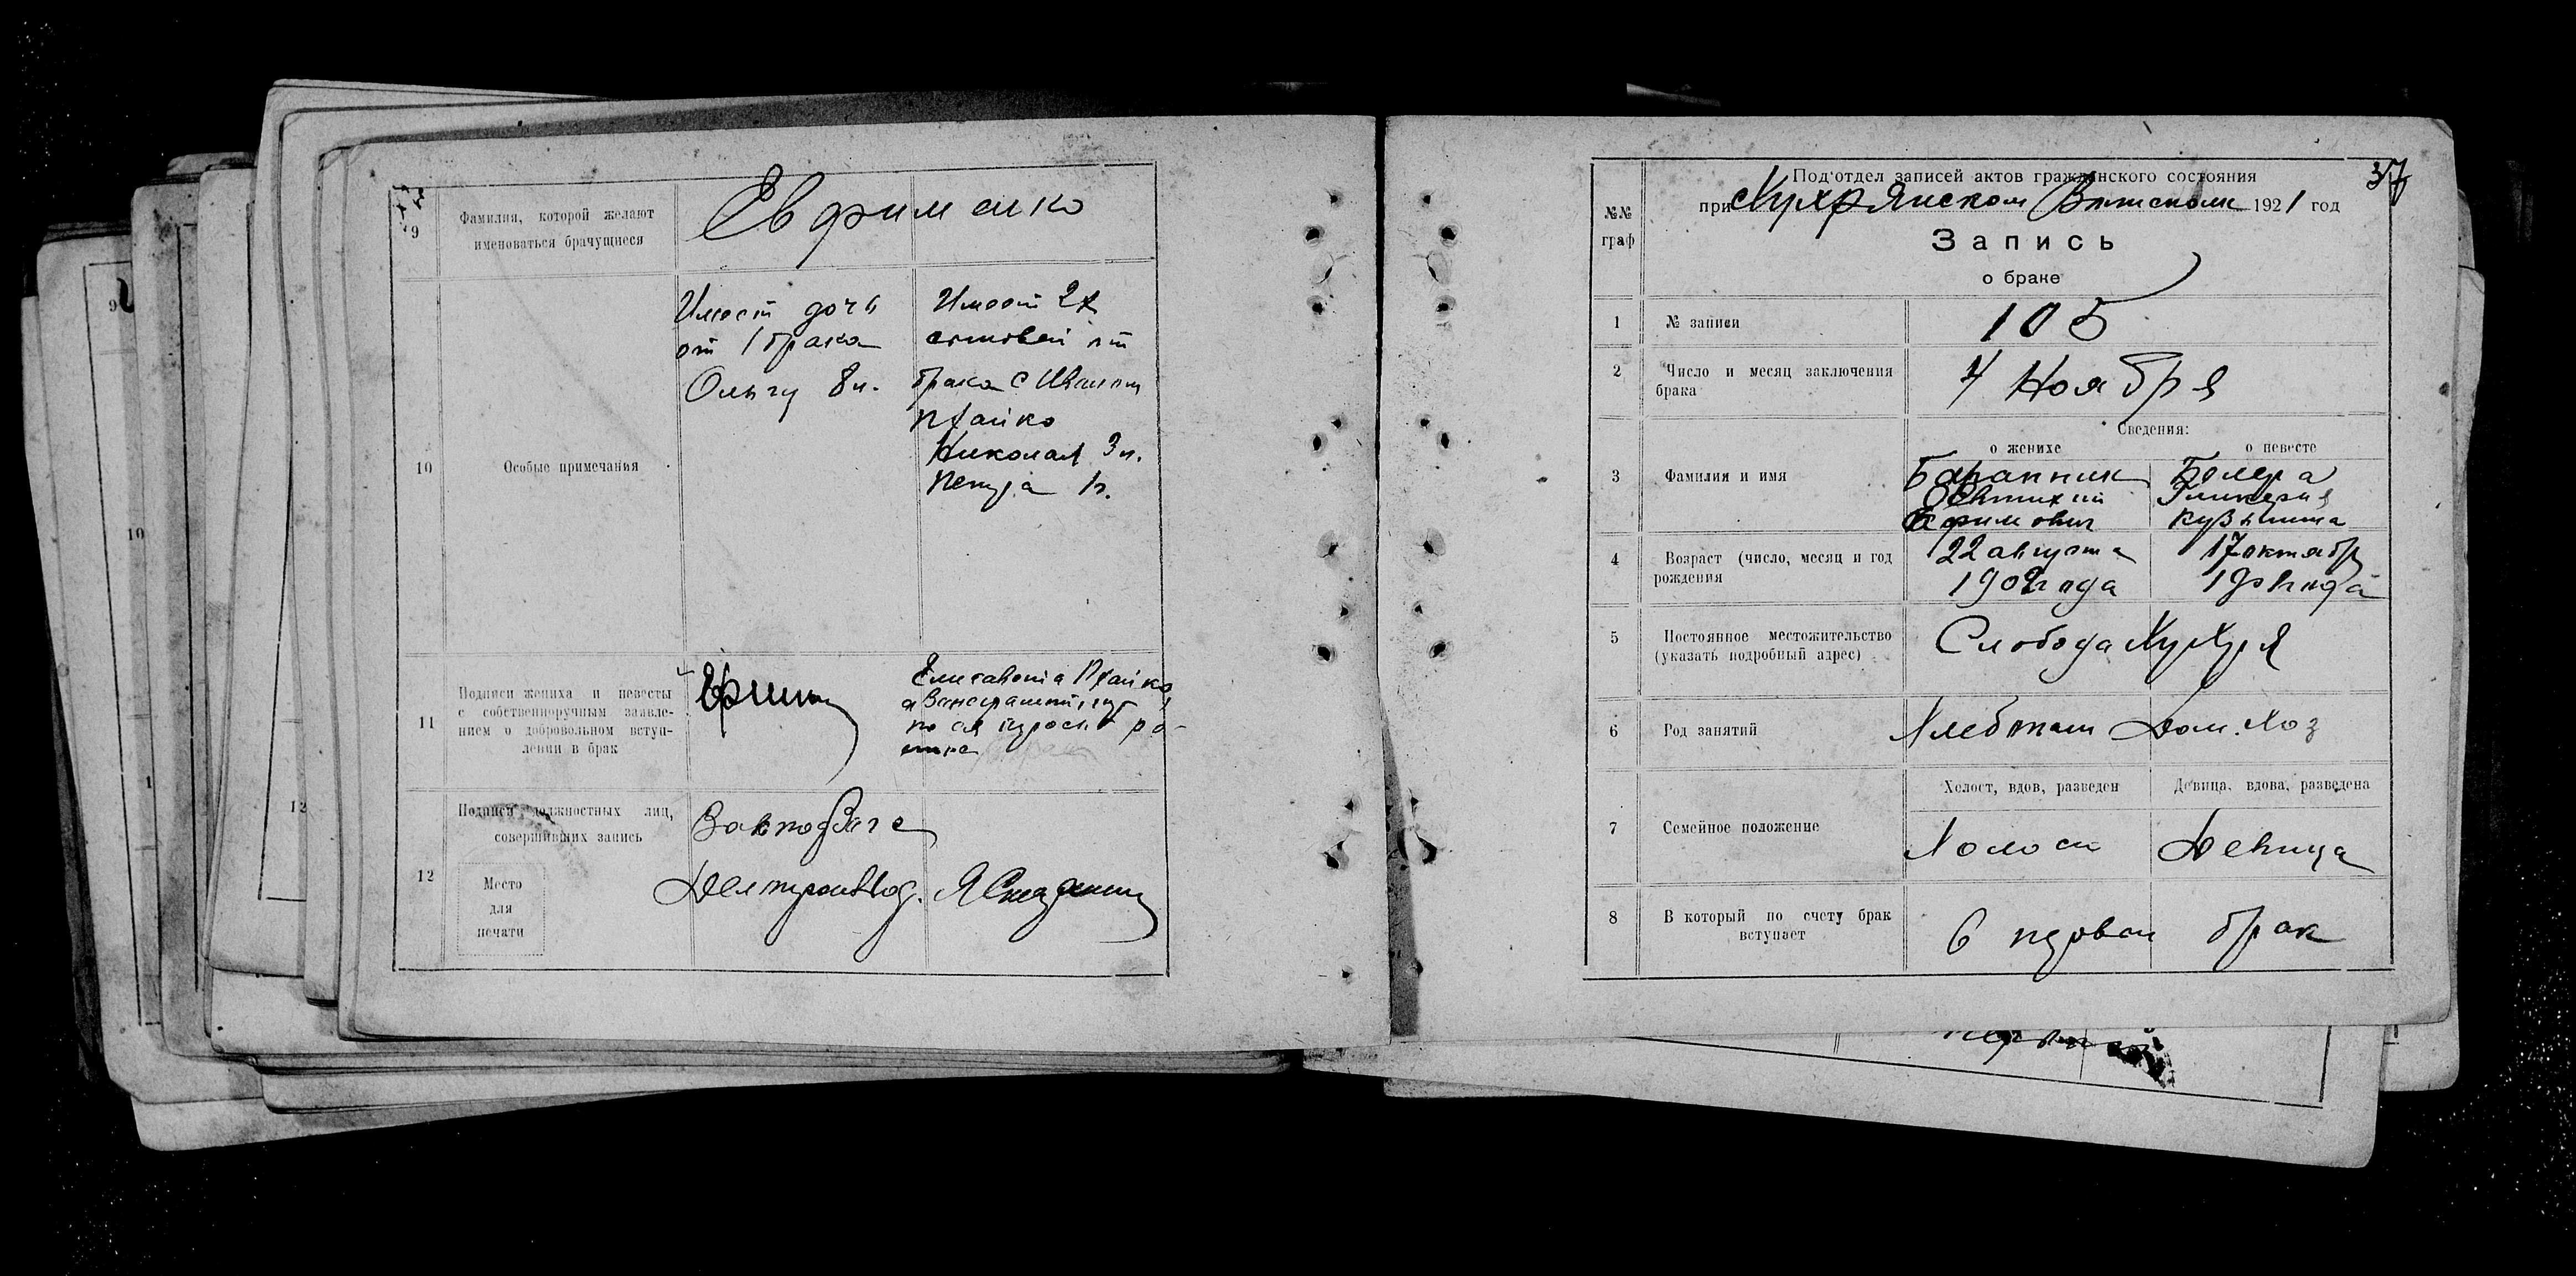 9
Фамилия, которой желают
именоваться брачущиеся
Евфименко
10
Особые примечания
Имеет дочь
от 1 брака
Ольгу 8 л.
Имеет 2х
сыновей от
брака с Иваном
Николая 3 л.
1 г.
11
Подписи жениха и невесты
с собственноручным заявле-
нием о добровольном вступ-
лении в брак
Елисавета
12
Подписи должностных лиц,
совершивших запись
Место
для
печати
Завподзагс
Делпроизвод.
9
10
12
37
№№
граф
Под'отдел записей актов гражданского состояния
при Кухрянском Волисполк 1921 год
Запись
о браке
1
№ записи
105
2
Число и месяц заключения
брака
7 Ноября
Сведения:
о женихе
о невесте
3
Фамилия и имя
Баранник
Евтихий
Ефимович
Гликерия
Кузьминa
4
Возраст (число, месяц и год
рождения
22 августа
1902 года
17 октябр
5
Постоянное местожительство
(указать подробный адрес)
Слобода Кухря
6
Род занятий
Хлебопаш
Дом. Хоз
7
Семейное положение
Холост, вдов, разведен
Девица, вдова, разведена
Холост
Девица
8
В который по счету брак
вступает
В первый брак